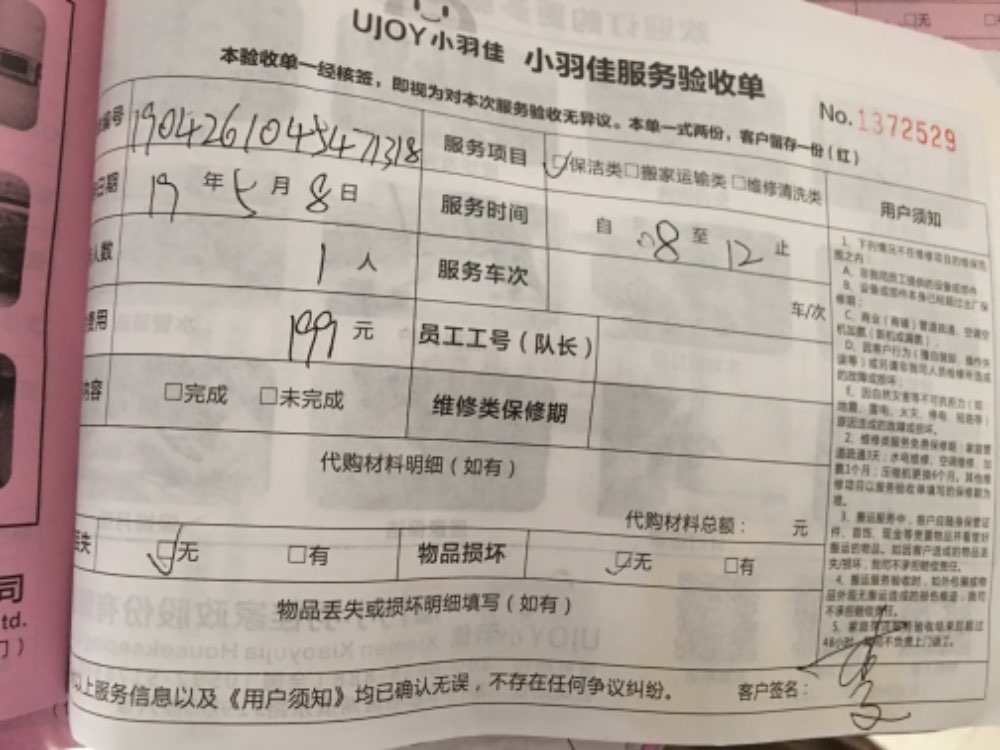 UJOY小羽佳 小羽佳服务验收单
本验收单一经核签，即视为对本次服务验收无异议。本单一式两份，客户留存一份（红）
No.1372529
编号 服务项目 ☑保洁类□搬家运输类□维修清洗类 用户须知
日期 19 年 5 月 8 日 服务时间 自 08 至 12 止
人数 1 人 服务车次 车/次
费用 199 元 员工工号（队长）
内容 □完成 □未完成 维修类保修期
代购材料明细（如有）
代购材料总额： 元
丢失 ☑无 □有 物品损坏 ☑无 □有
物品丢失或损坏明细填写（如有）
以上服务信息以及《用户须知》均已确认无误，不存在任何争议纠纷。 客户签名：
1、下列情况不在维修项目的维保范
围之内：
A、非我司员工提供的设备或部件；
B、设备或部件本身已经超过主厂保
修期；
C、商业（商铺）管道疏通、空调空
机加氟（新机或漏氟）；
D、因客户行为（擅自装卸、操作失
误等）或另请非我司人员检修所造成
的故障或损坏；
E、因自然灾害等不可抗拒力（如：
地震、雷电、火灾、停电、短路等）
原因造成的故障或损坏。
2、维修类服务免费保修期：家庭管
道疏通3天；水电维修、空调维修、加
氟1个月；压缩机更换6个月。其他维
修项目以服务验收单填写的保修期为
准。
3、搬运服务中，客户应随身保管证
件、首饰、现金等贵重物品并看管好
搬运的物品。如因客户造成的物品丢
失/损坏，我司不承担赔偿责任。
4、搬运服务验收时，如外包装或物
品外观无搬运造成的损伤痕迹，我司
不承担赔偿责任。
司
td.
门）
□无